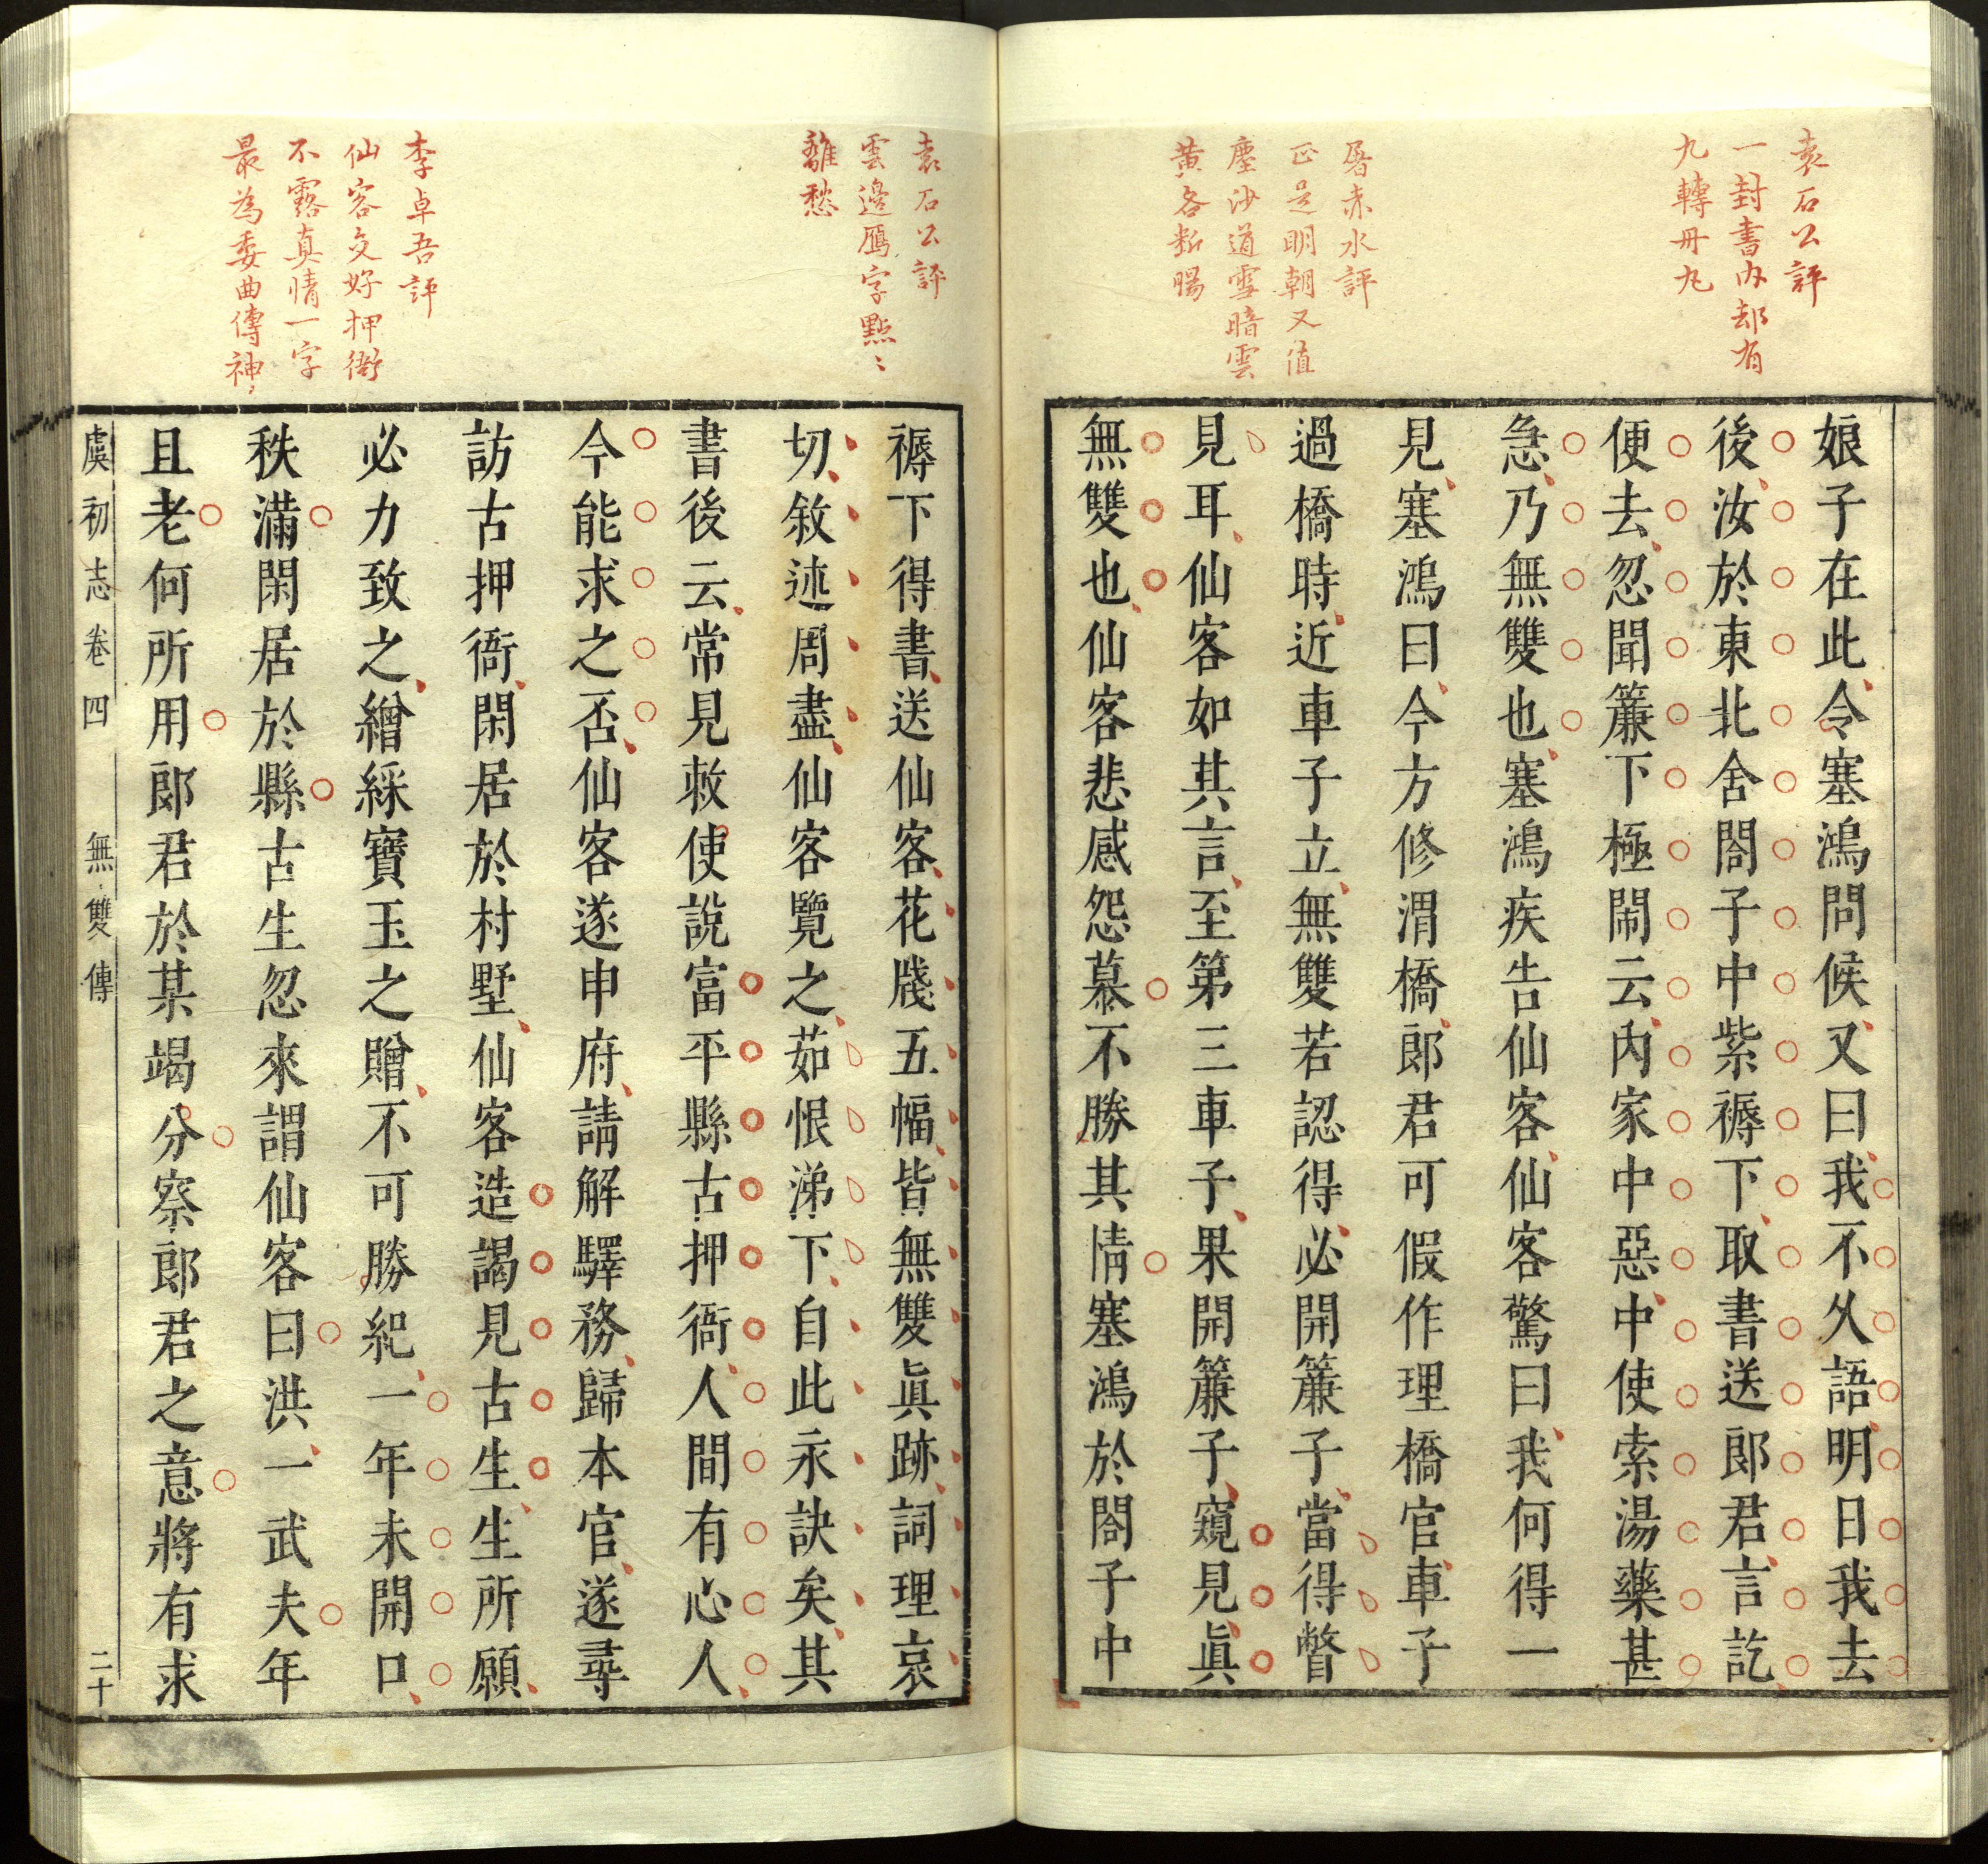 袁石公評
一封書內却有
九轉丹丸
屠赤水評
正是明朝又值
塵沙道雪暗雲
黄各斷腸
娘子在此令塞鴻問候又曰我不久語明日我去
後汝於東北舍閤子中紫褥下取書送郎君言訖
便去忽聞簾下極鬧云內家中惡中使索湯藥甚
急乃無雙也塞鴻疾告仙客仙客驚曰我何得一
見塞鴻曰今方修渭橋郎君可假作理橋官車子
過橋時近車子立無雙若認得必開簾子當得瞥
見耳仙客如其言至第三車子果開簾子窺見眞
無雙也仙客悲感怨慕不勝其情塞鴻於閤子中
袁石公評
雲邊鴈字點〻
離愁
李卓吾評
仙客交好押衙
不露真情一字
最為委曲傳神
褥下得書送仙客花牋五幅皆無雙眞跡詞理哀
切敘述周盡仙客覽之茹恨涕下自此永訣矣其
書後云常見敕使說富平縣古押衙人間有心人
今能求之否仙客遂申府請解驛務歸本官遂尋
訪古押衙閑居於村墅仙客造謁見古生生所願
必力致之繒綵寶玉之贈不可勝紀一年未開口
秩滿閑居於縣古生忽來謂仙客曰洪一武夫年
且老何所用郎君於某竭分察郎君之意將有求
虞初志卷四 無雙傳 二十